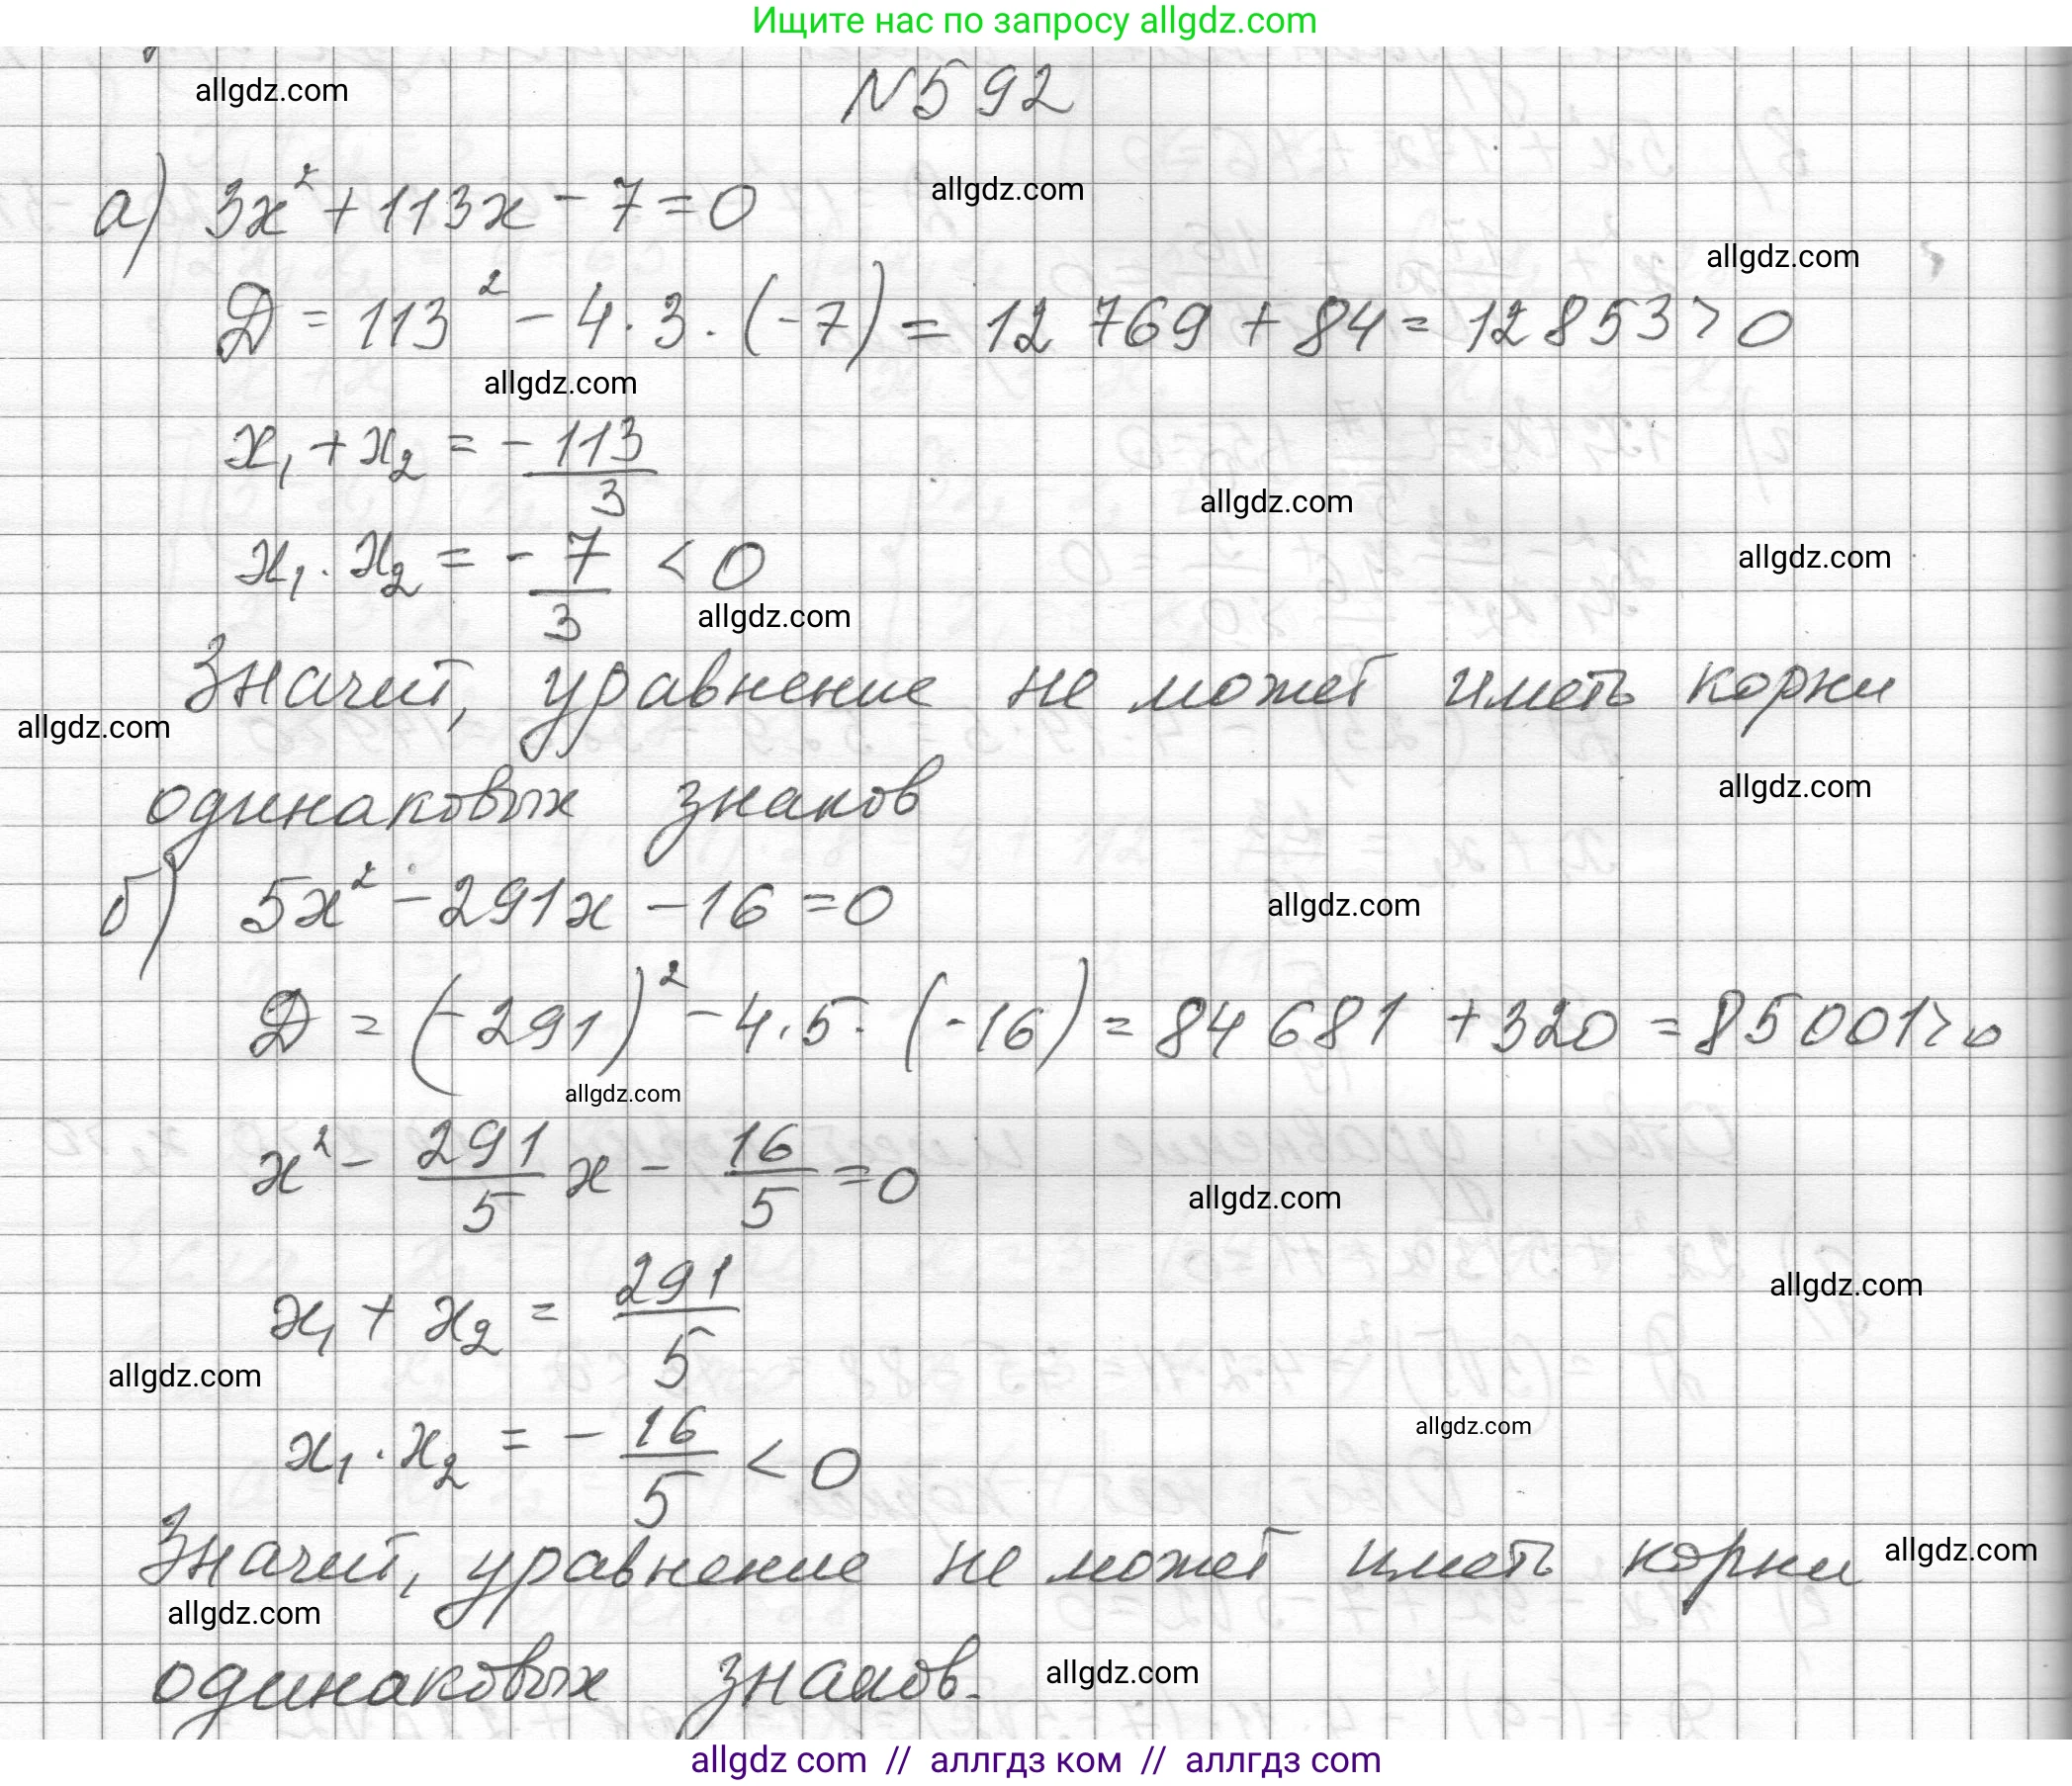 Ищите нас по запросу allgdz.com
allgdz.com
N592
а) 3x² + 113x - 7 = 0
allgdz.com
allgdz.com
D = 113² - 4 · 3 · (-7) = 12 769 + 84 = 12853 > 0
allgdz.com
x₁ + x₂ = - 113/3
allgdz.com
x₁ · x₂ = - 7/3 < 0
allgdz.com
allgdz.com
Значит, уравнение не может иметь корни
allgdz.com
одинаковых знаков
allgdz.com
б) 5x² - 291x - 16 = 0
allgdz.com
D = (-291)² - 4 · 5 · (-16) = 84 681 + 320 = 85001 > 0
allgdz.com
x² - 291/5 x - 16/5 = 0
allgdz.com
x₁ + x₂ = 291/5
allgdz.com
allgdz.com
x₁ · x₂ = - 16/5 < 0
allgdz.com
Значит, уравнение не может иметь корни
allgdz.com
allgdz.com
одинаковых знаков.
allgdz.com
allgdz com // аллгдз ком // аллгдз com